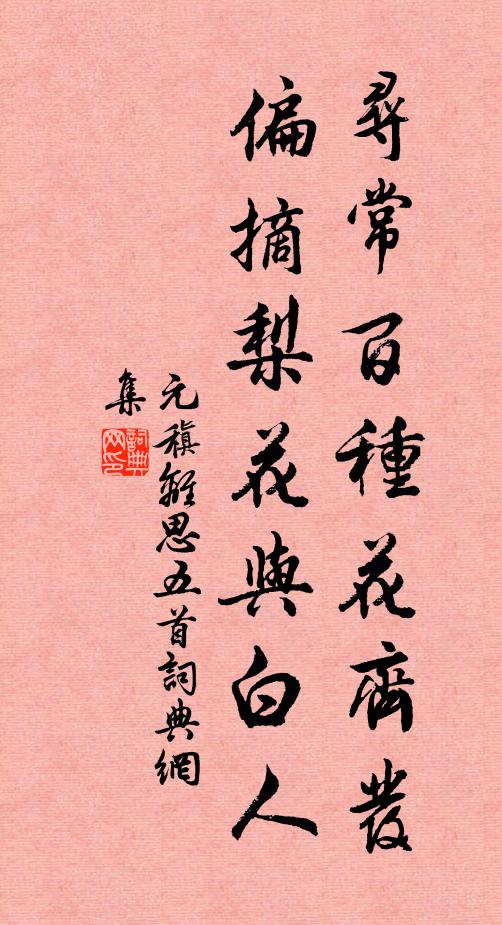 尋常百種花齊發
偏摘梨花與白人
元稹離思五首詞典網
集
詞典网印